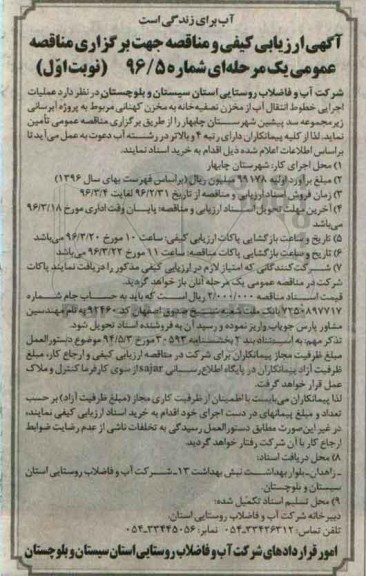 آب برای زندگی است
آگهی ارزیابی کیفی و مناقصه جهت برگزاری مناقصه
عمومی یک مرحله‌ای شماره ۹۶/۵ (نوبت اوّل)
شرکت آب و فاضلاب روستایی استان سیستان و بلوچستان در نظر دارد عملیات
اجرایی خطوط انتقال آب از مخزن تصفیه‌خانه به مخزن کهنانی مربوط به پروژه آبرسانی
زیرمجموعه سد پیشین شهرستان چابهار را از طریق برگزاری مناقصه عمومی تأمین
نماید. لذا از کلیه پیمانکاران دارای رتبه ۴ و بالاتر در رشته آب دعوت به عمل می‌آید تا
براساس اطلاعات اعلام شده ذیل اقدام به خرید اسناد نمایند.
۱) محل اجرای کار: شهرستان چابهار
۲) مبلغ برآورد اولیه ۹۹۱۷۸ میلیون ریال (براساس فهرست بهای سال ۱۳۹۶)
۳) زمان فروش اسناد ارزیابی و مناقصه از تاریخ ۹۶/۲/۳۱ لغایت ۹۶/۳/۴
۴) آخرین مهلت تحویل اسناد ارزیابی و مناقصه: پایان وقت اداری مورخ ۹۶/۳/۱۸
می‌باشد
۵) تاریخ و ساعت بازگشایی پاکات ارزیابی کیفی: ساعت ۱۰ مورخ ۹۶/۳/۲۰ می‌باشد
۶) تاریخ و ساعت بازگشایی پاکات مناقصه: ساعت ۱۱ مورخ ۹۶/۳/۲۲ می‌باشد
۷) شرکت‌کنندگانی که امتیاز لازم در ارزیابی کیفی مذکور را دریافت نمایند پاکات
شرکت در مناقصه عمومی یک مرحله آنان باز خواهد گردید.
قیمت اسناد مناقصه ۲/۰۰۰/۰۰۰ ریال است که باید به حساب جام شماره
۷۲۵۰۸۹۷۷۱۷ بانک ملت شعبه شیخ صدوق اصفهان کد ۹۲۴۶۰ به نام مهندسین
مشاور پارس جویاب واریز نموده و رسید آن به فروشنده اسناد تحویل شود.
تذکر مهم: به استناد بند ۲ بخشنامه ۲۰۵۹۳ مورخ ۹۴/۵/۳ موضوع دستورالعمل
مبلغ ظرفیت مجاز پیمانکاران برای شرکت در مناقصه ارزیابی کیفی و ارجاع کار، مبلغ
ظرفیت آزاد پیمانکاران در پایگاه اطلاع‌رسانی sajar از سوی کارفرما کنترل و ملاک
عمل قرار خواهد گرفت.
لذا پیمانکاران می‌بایست با اطمینان از ظرفیت کاری مجاز (مبلغ ظرفیت آزاد) بر حسب
تعداد و مبلغ پیمانهای در دست اجرای خود اقدام به خرید اسناد ارزیابی کیفی نمایند،
در غیر این‌صورت مطابق دستورالعمل رسیدگی به تخلفات ناشی از عدم رضایت ضوابط
ارجاع کار با آن شرکت رفتار خواهد گردید.
۸) محل دریافت اسناد:
ـ زاهدان ـ بلوار بهداشت نبش بهداشت ۱۳ ـ شرکت آب و فاضلاب روستایی استان
سیستان و بلوچستان
۹) محل تسلیم اسناد تکمیل شده:
دبیرخانه شرکت آب و فاضلاب روستایی استان.
تلفن تماس: ۳۳۴۲۶۳۱۲-۰۵۴ نمابر: ۳۳۴۴۵۰۵۶-۰۵۴
امور قراردادهای شرکت آب و فاضلاب روستایی استان سیستان و بلوچستان